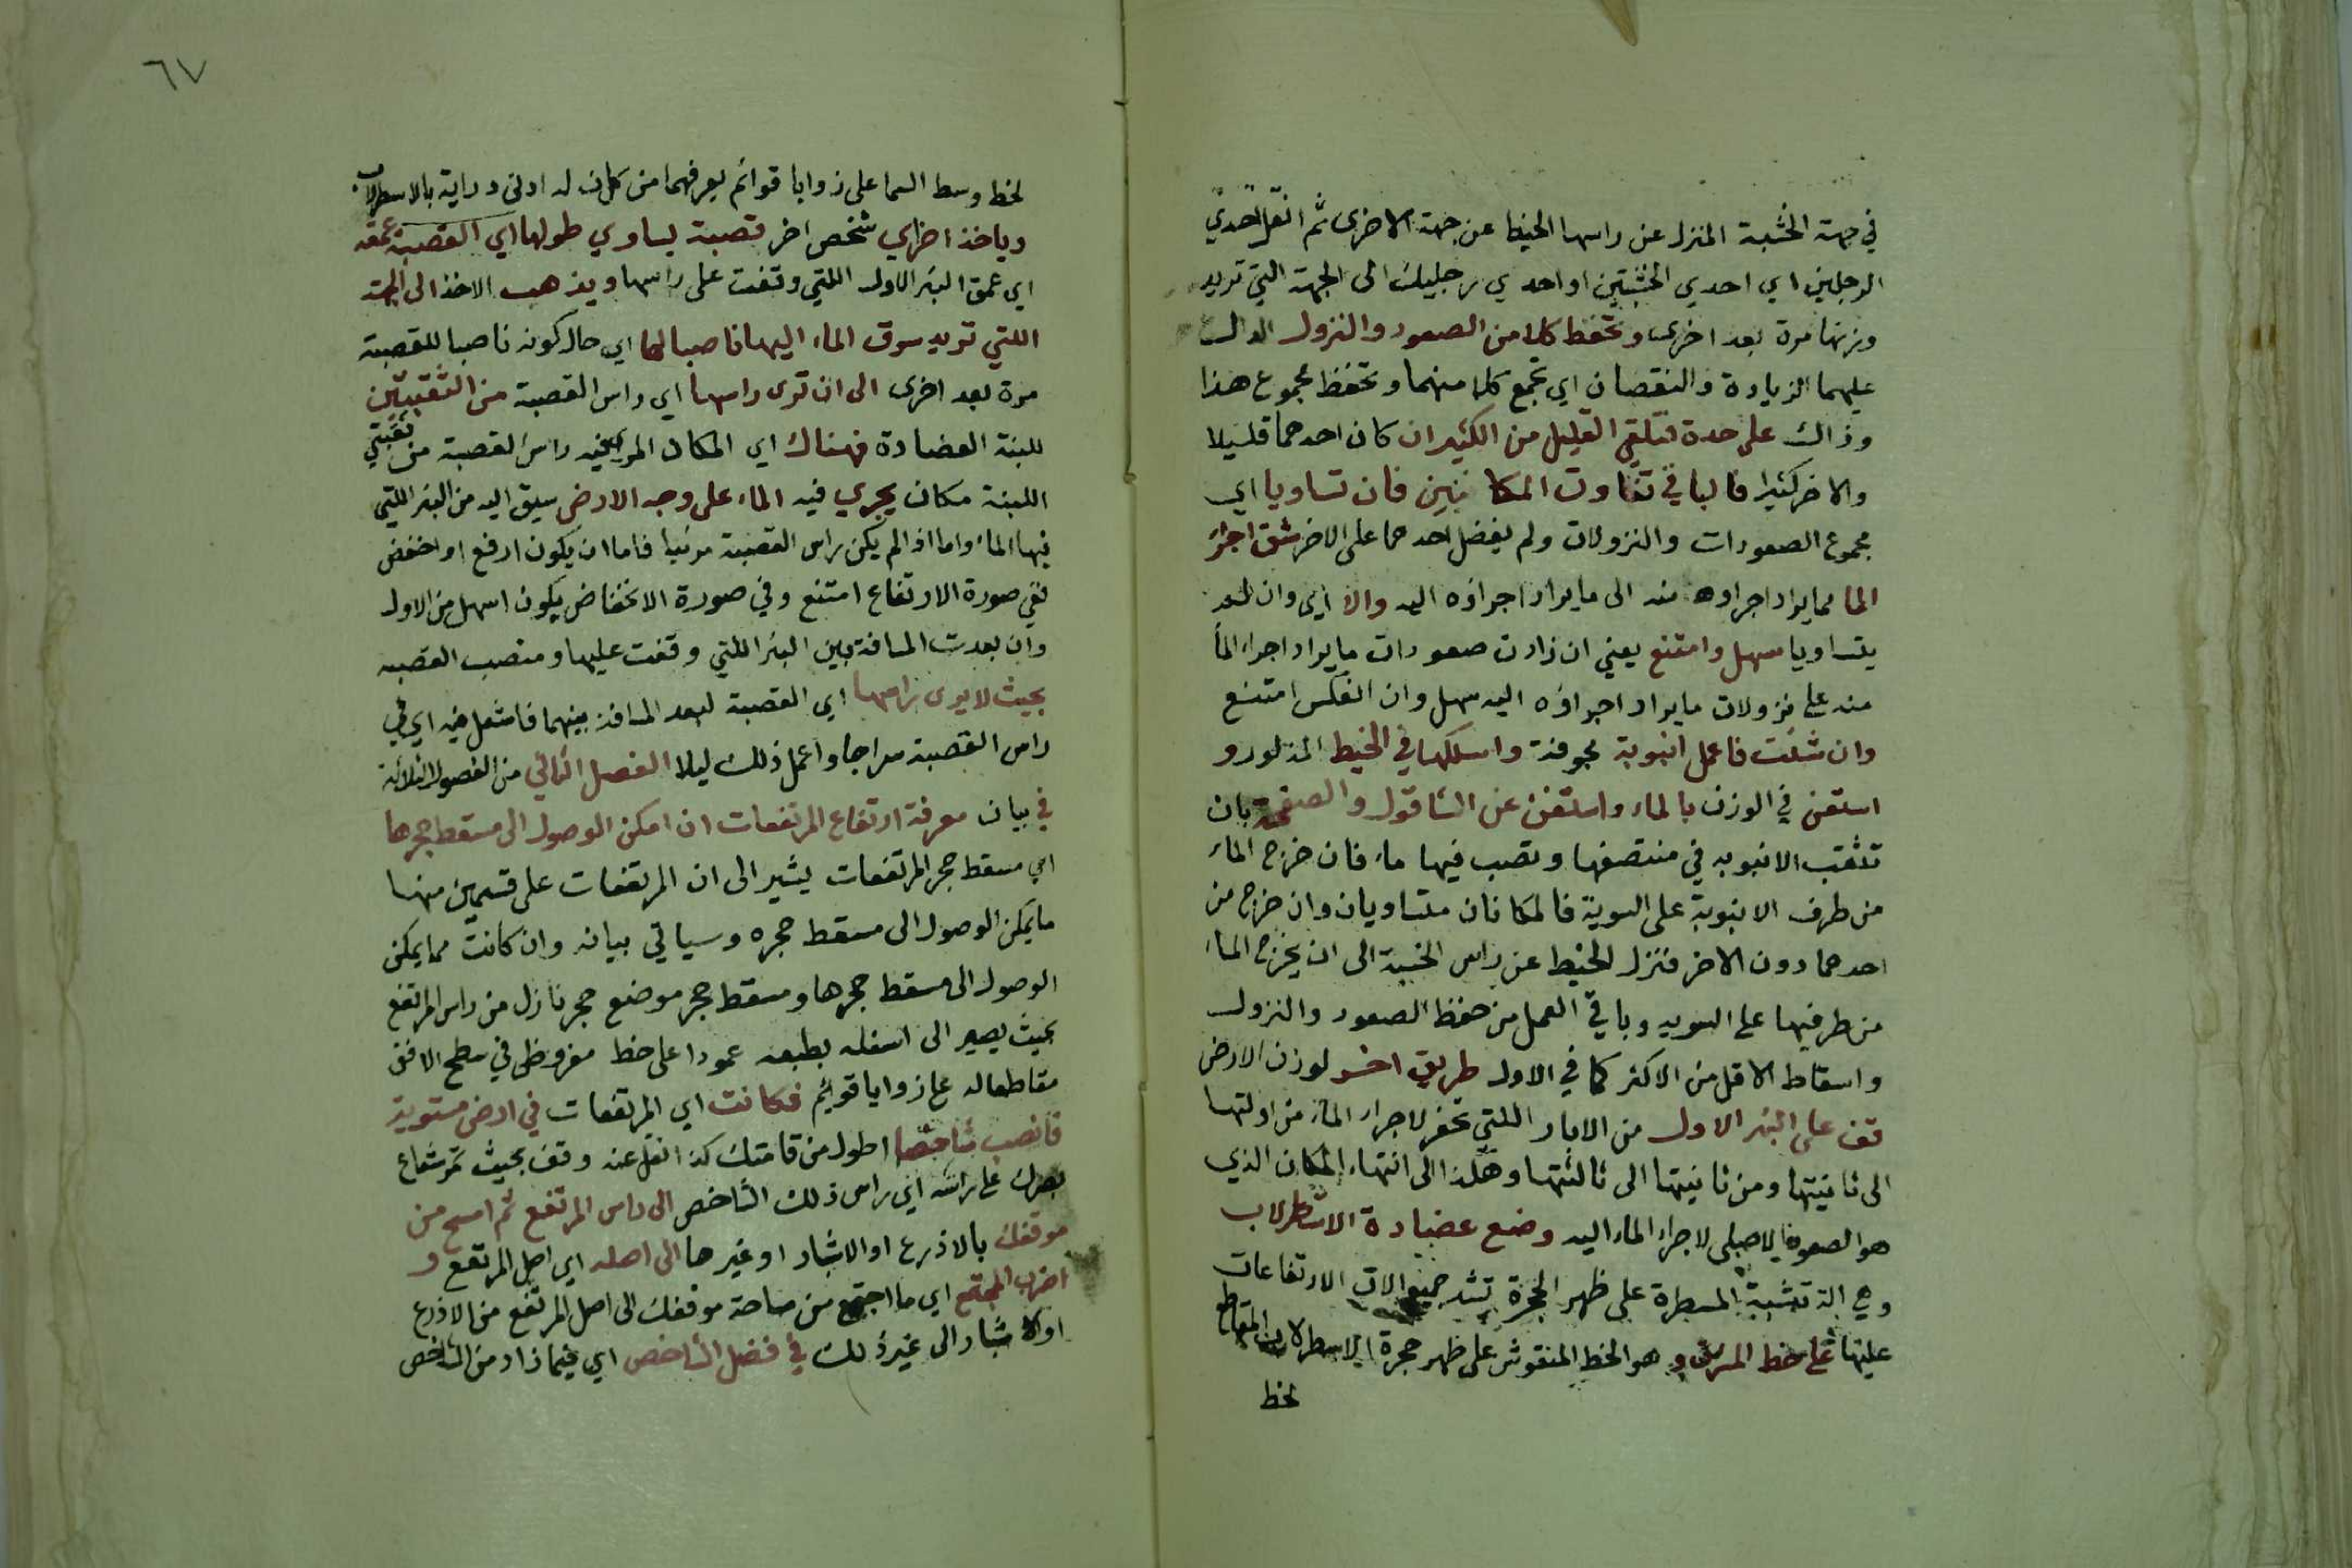 في جهة الخشبة المنزل عن راسها الخيط عن جهة الاخرى ثم انقل احدي
الرجلين اي احدي الخشبتين او احدي رجليك الى الجهة التي تريد
وزنها مرة بعد اخرى وتحفظ كلا من الصعود والنزول الدال
عليهما الزيادة والنقصان اي تجمع كلا منهما وتحفظ مجموع هذا
وذاك على حدة فتلقي القليل من الكثير ان كان احدهما قليلا
والاخر كثيرا فالباقي تفاوت المكانين فان تساويا اي
مجموع الصعودات والنزولات ولم يفضل احدهما على الاخر شق اجراء
الما مما يراد اجراوه منه الى ما يراد اجراؤه اليه والا اي وان لم
يتساويا سهل وامتنع يعني ان زادت صعودات ما يراد اجراء الماء
منه على نزولات ما يراد اجراؤه اليه سهل وان انعكس امتنع
وان شئت فاعمل انبوبة مجوفة واسلكها في الخيط المذكور و
استعن في الوزن بالماء واستغن عن الشاقول والصفيحة بان
تثقب الانبوبه في منتصفها وتصب فيها ماء فان خرج الماء
من طرف الانبوبة على السوية فالمكانان متساويان وان خرج من
احدهما دون الاخر فتنزل الخيط عن راس الخشبة الى ان يخرج الماء
من طرفيها على السويه وباقي العمل من حفظ الصعود والنزول
واسقاط الاقل من الاكثر كما في الاول طريق اخر لوزن الارض
قف على البئر الاول من الابار اللتي تحفر لاجراء الماء من اولتها
الى ثانيتها ومن ثانيتها الى ثالثتها وهكذا الى انتهاء المكان الذي
هو الصعود الاصلي لاجراء الماء اليه وضع عضادة الاسطرلاب
وهي الة تشبة المسطرة على ظهر الحجرة تشد جميع الات الارتفاعات
عليها على خط المشرق و هو الخط المنقوش على ظهر حجرة الاسطرلاب المقاطع
لخط
٦٧
لخط وسط السما على زوايا قوائم يعرفهما من كان له ادنى دراية بالاسطرلاب
وياخذ اخر اي شخص اخر قصبة يساوي طولها اي القصبة عمقه
اي عمق البئر الاول اللتي وقفت على راسها ويذهب الاخذ الى الجهة
اللتي تريد سوق الماء اليها ناصبا لها اي حال كونه ناصبا للقصبة
مرة بعد اخرى الى ان ترى راسها اي راس القصبة من الثقبتين
للبنة العضادة فهناك اي المكان المرئي فيه راس القصبة من ثقبتي
اللبنة مكان يجري فيه الماء على وجه الارض سيق اليه من البئر اللتي
فيها الماء واما اذا لم يكن راس القصبة مرئيا فاما ان يكون ارفع او اخفض
ففي صورة الارتفاع امتنع وفي صورة الانخفاض يكون اسهل من الاول
وان بعدت المسافة بين البئر اللتي وقفت عليها ومنصب القصبه
بحيث لا يرى راسها اي القصبة لبعد المسافة بينهما فاشعل فيه اي في
راس القصبة سراجا واعمل ذلك ليلا الفصل الثاني من الفصول الثلاثة
في بيان معرفة ارتفاع المرتفعات ان امكن الوصول الى مسقط حجرها
اي مسقط حجر المرتفعات يشير الى ان المرتفعات على قسمين منها
ما يمكن الوصول الى مسقط حجره وسياتي بيانه وان كانت مما يمكن
الوصول الى مسقط حجرها ومسقط حجر موضع حجر نازل من راس المرتفع
بحيث يصير الى اسفله بطبعه عمودا على خط مفروض في سطح الافق
مقاطعاله على زوايا قوائم فكانت اي المرتفعات في ارض مستوية
فانصب شاخصا اطول من قامتك كذا نقل عنه وقف بحيث تمر شعاع
بصرك على راسه اي راس ذلك الشاخص الى راس المرتفع ثم امسح من
موقفك بالاذرع او الاشبار او غيرها الى اصله اي اصل المرتفع و
اضرب المجتمع اي ما اجتمع من مساحة موقفك الى اصل المرتفع من الاذرع
او الاشبار الى غير ذلك في فضل الشاخص اي فيما زاد من الشاخص